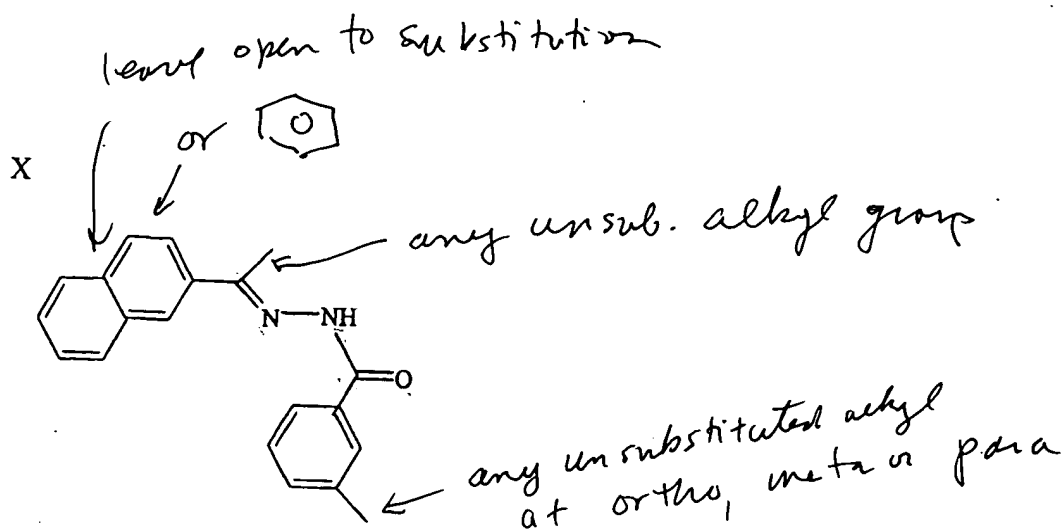 leave open to substitution
or
X
any unsub. alkyl group
N—NH
O
any unsubstituted alkyl
at ortho, meta or para